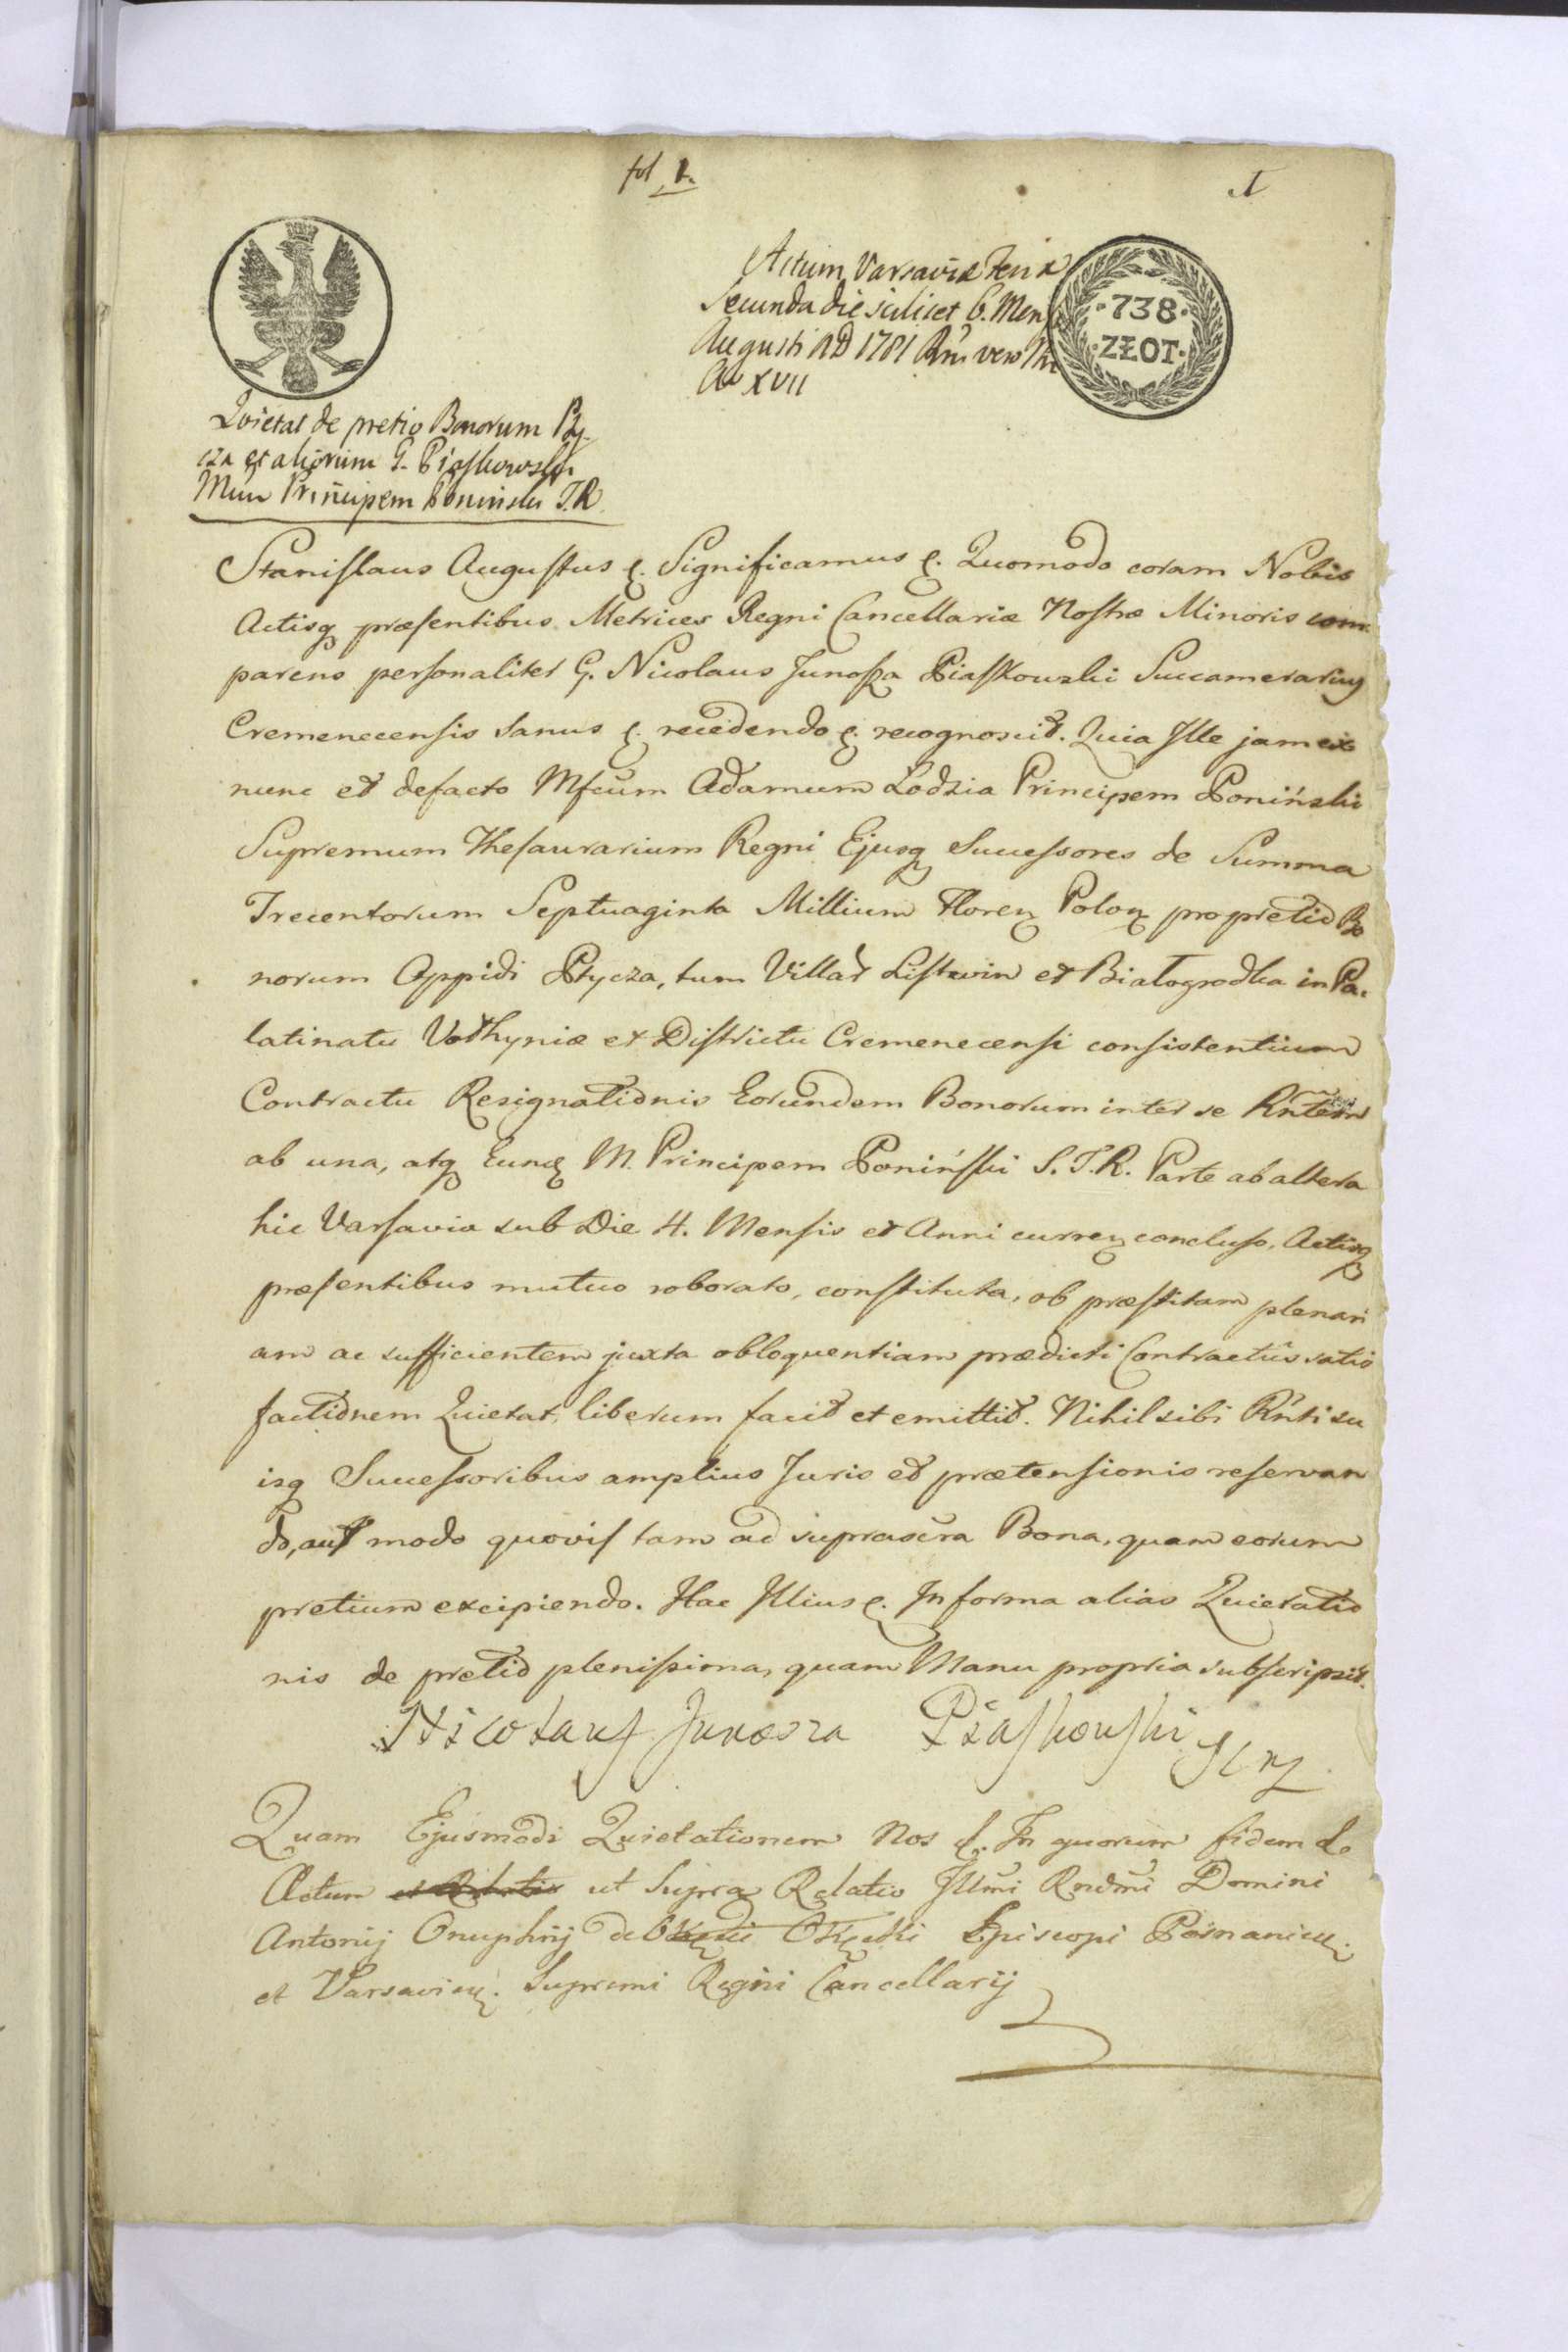 fol. 1.
1
Actum Varsaviæ Feria
Secunda die scilicet 6. Men
Augusti AD 1781 Rni vero Nri
Ao XVII
738
ZŁOT
Quietat de pretio Bonorum Pty-
cza et aliorum G. Piaskowski
Mcum Principem Poninski T.R.
Stanislaus Augustus &. Significamus &. Quomodo coram Nobis
Actisq præsentibus Metrices Regni Cancellariæ Nostræ Minoris com-
parens personaliter G. Nicolaus Junosza Piaskowski Succamerarius
Cremenecensis sanus &. recedendo &. recognovit. Quia Ille jam ex
nunc et defacto Mfcum Adamum Lodzia Principem Poniński
Supremum Thesaurarium Regni Ejusq Successores de Summa
Trecentorum Septuaginta Millium Floren Polon pro pretio Bo
norum Oppidi Ptycza, tum Villar Listwin et Białogrodka in Pa-
latinatu Volhyniæ et Districtu Cremenecensi consistentium
Contractu Resignationis Eorundem Bonorum inter se Rntem
ab una, atq Eund M. Principem Poniński S.T.R. Parte ab altera
hic Varsaviæ sub Die 4. Mensis et Anni curren concluso, Actisq
præsentibus mutuo roborato, constituta, ob præstitam plenari
am ac sufficientem juxta obloquentiam prædicti Contractûs satis
factionem Quietat, liberum facit et emittit. Nihil sibi Rnti su
isq Successoribus amplius Juris et prætensionis reservan
do, aut modo quovis tam ad suprascra Bona, quam eorum
pretium excipiendo. Hac Illius &. In forma alias Quietatio
nis de pretio plenissima, quam Manu propria subscripsit.
Nicolaus Junosza Piaskowski
Quam Ejusmodi Quietationem Nos &. In quorum fidem &
Actum et Relatio ut Supra Relatio Illmi Rndmi Domini
Antonij Onuphrij de Okęcie Okęcki Episcopi Posnanien.
et Varsavien. Supremi Regni Cancellarij